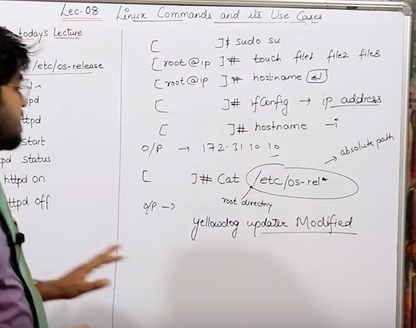 Lec-08 Linux Commands and its Use Cases
today's Lecture
/etc/os-release
pd
ttpd
start
pd status
httpd on
ttpd off
[ ]$ sudo su
[root@ip ]# touch file1 file2 file3
[root@ip ]# hostname
[ ]# ifconfig → ip address
[ ]# hostname -i
O/P → 172-31.10.10
absolute path
[ ]# Cat /etc/os-rel*
root directory
O/P →
yellowdog updater Modified